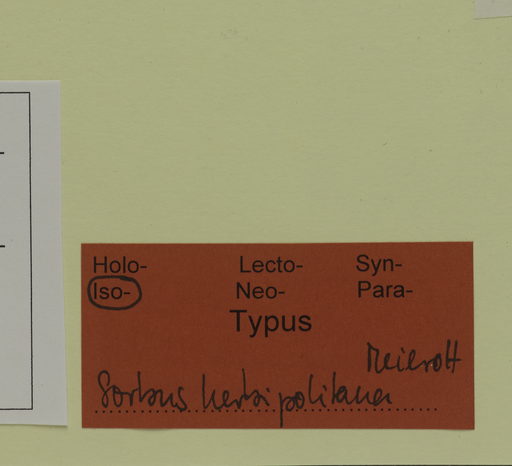 Holo- Lecto- Syn-
Iso- Neo- Para-
Typus
Meierott
Sorbus herbipolitana